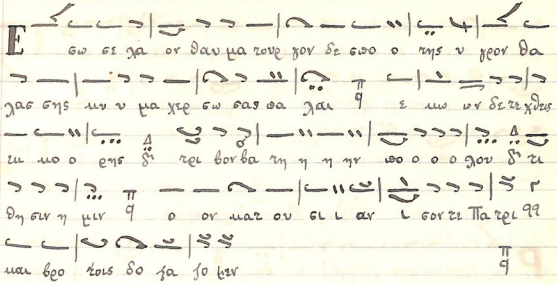 Ε σω σε λα ον θαυ μα τουρ γον δε σπο ο της υ γρον θα
λασ σης κυ υ μα χερ σω σας πα λαι π q ε κω ων δε τε χθεις
εκ κο ο ρης Δι τρι βον βα τη η η ην πο ο ο ο λου Δι τι
θη σιν η μιν π q ο ον κατ ου σι ι αν ι σον τε Πα τρι qq
και βρο τοις δο ξα ζο μεν π q